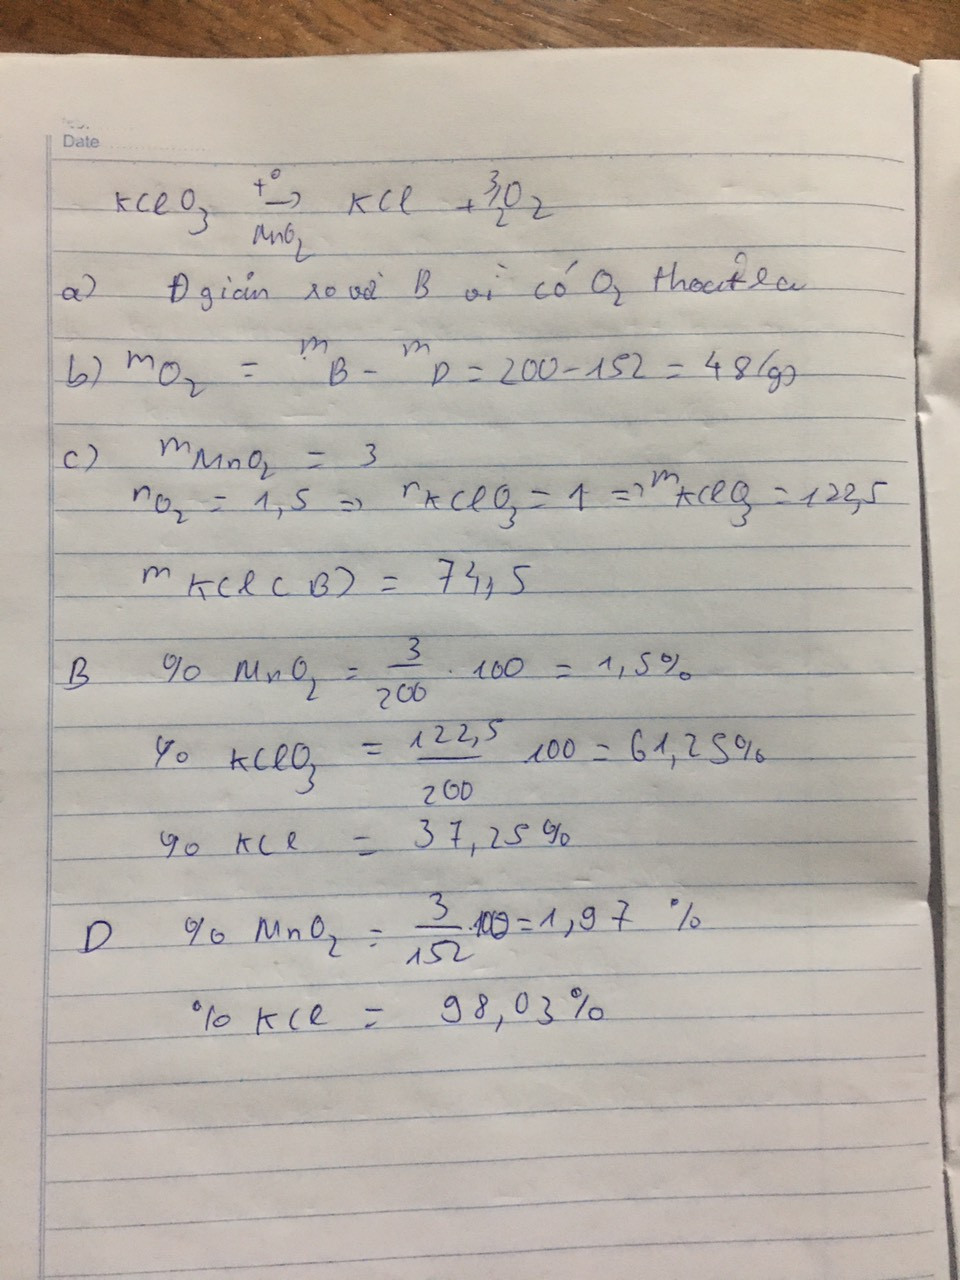 Date
KClO3 t° → MnO2 KCl + 3/2 O2
a) D giảm so với B vì có O2 thoát ra
b) mO2 = mB - mD = 200 - 152 = 48(g)
c) mMnO2 = 3
nO2 = 1,5 => nKClO3 = 1 => mKClO3 = 122,5
mKCl(B) = 74,5
B % MnO2 = 3/200 . 100 = 1,5%
% KClO3 = 122,5/200 100 = 61,25%
% KCl = 37,25%
D % MnO2 = 3/152 .100 = 1,97 %
% KCl = 98,03%